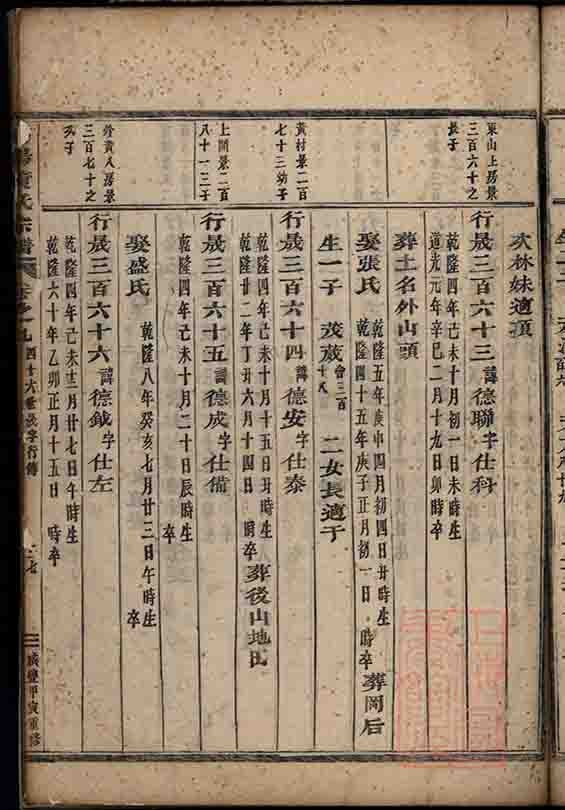 次林妹適項
東山上房景
三百六十之
長子
行晟三百六十三諱德聯字仕科
乾隆四年己未十月初一日未時生
道光元年辛巳二月十九日卯時卒
葬土名外山頭
娶張氏
乾隆五年庚申四月初四日丑時生
乾隆四十五年庚子正月初一日 時卒
葬岡后
生一子
茂葳曾三百
十八
二女長適于
黃村景二百
七十三幼子
行晟三百六十四諱德安字仕泰
乾隆四年己未十月十五日丑時生
乾隆廿二年丁丑六月十四日 時卒
葬後山地田
上閣景二百
八十一三子
行晟三百六十五諱德成字仕備
乾隆四年己未十月二十日辰時生
卒
娶盛氏
乾隆八年癸亥七月廿三日午時生
卒
景
三百七十之
子
行晟三百六十六諱德鉞字仕左
乾隆四年己未十二月廿七日午時生
乾隆六十年乙卯正月十五日 時卒
氏宗譜
卷之九
四十六世晟字行傳
三
咸豐甲寅重修